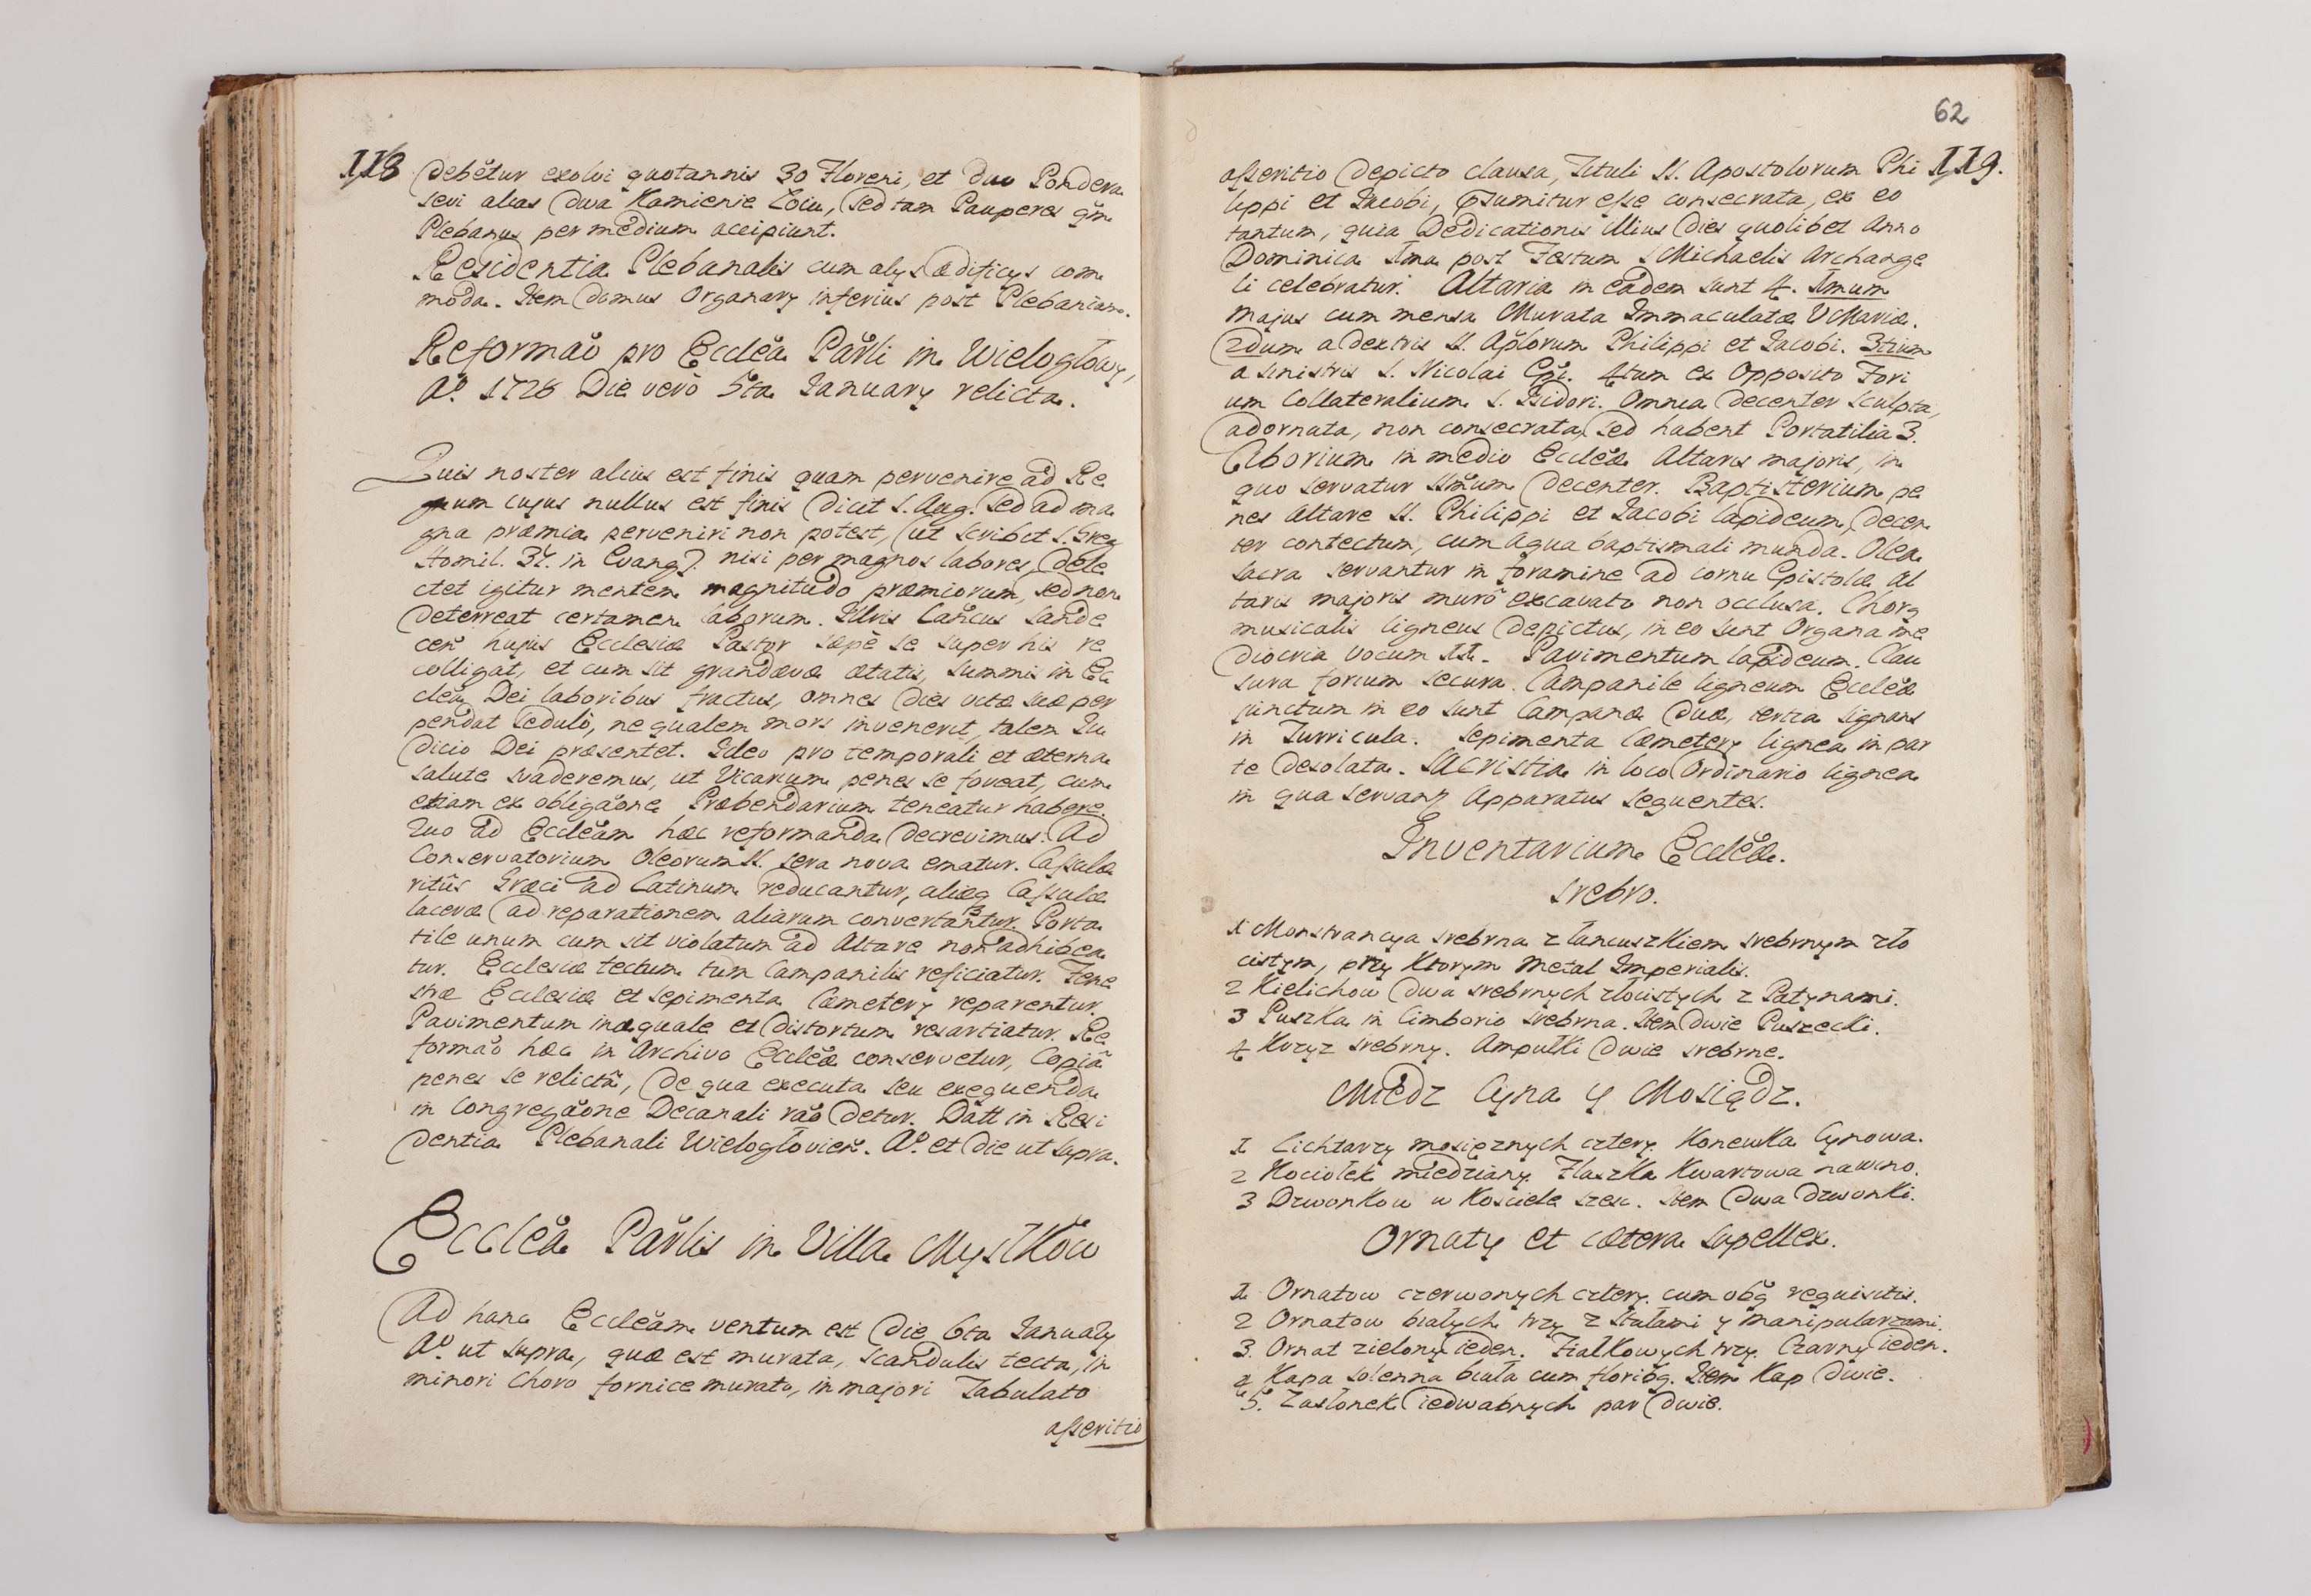 118
Debetur exolvi quotannis 30 Floreni, et duo Pondera
sevi alias Dwa Kamienie Łoiu, sed tam Pauperes qm̃
Plebanus per medium accipiunt.
Residentia Plebanalis cum alys ædificys com
moda. Item Domus Organary inferius post Plebaniam.
Reformaõ pro Eccleã Parli in Wielogłowy,
Aº. 1728 Die verò 5ta January relicta.
Quis noster alius est finis quam pervenire ad Re
gnum cujus nullus est finis Dicit S. Aug. sed ad ma
gna præmia perveniri non potest, ut scribit S. Greg
Homil. 37. in Evang. nisi per magnos labores, Dele
ctet igitur mentem magnitudo præmiorum, sed non
Deterreat certamen laborum. Illris Cancus Sande
ceñ hujus Ecclesiæ Pastor sæpè se super his re
colligat, et cum sit grandævæ ætatis, summis in Ec
cleã Dei laboribus fractus, omnes Dies vitæ suæ per
pendat sedulò, ne qualem mors invenerit, talem Iu
dicio Dei præsentet. Ideo pro temporali et æterna
salute svaderemus, ut Vicarium penes se foveat, cum
etiam ex obligaõne Præbendarium teneatur habere.
Quo ad Eccleãm hæc reformanda Decrevimus. Ad
Conservatorium Oleorum SS. sera nova ematur. Casulæ
ritûs Græci ad Latinum reducantur, aliæq Casulæ
laceræ ad reparationem aliarum convertantur. Porta
tile unum cum sit violatum ad Altare non adhibea
tur. Ecclesiæ tectum tum Campanilis reficiatur. Fene
stræ Ecclesiæ et sepimenta Cæmetery reparentur.
Pavimentum inæquale et Distortum resartiatur. Re
formaõ hæc in Archivo Eccleæ conservetur, Copiâ
penes se relictâ, De qua executa seu exequenda
in Congregaõne Decanali raõ Detur. Datt in Resi
dentia Plebanali Wielogłovieñ. Aº. et Die ut supra.
Eccleã Parlis in Villa Mystkow
Ad hanc Eccleãm ventum est Die 6ta January
Aº. ut supra, quæ est murata, scandulis tecta, in
minori Choro fornice murato, in majori Tabulato
asseritio
62
119.
asseritio Depicto clausa, Tituli SS. Apostolorum Phi
lippi et Iacobi, Præsumitur esse consecrata, ex eo
tantum, quia Dedicationis illius Dies quolibet Anno
Dominica 1ma post Festum S Michaelis Archange
li celebratur. Altaria in eadem sunt 4. 1mum
Majus cum mensa Murata Immaculatæ V Mariæ.
2dum a Dextris SS. Aplorum Philippi et Iacobi. 3tium
a sinistris S. Nicolai Epi. 4tum ex Opposito Fori
um Collateralium S. Isidori. Omnia Decenter sculpta,
adornata, non consecrata, sed habent Portatilia 3.
Ciborium in medio Eccleæ Altaris majoris, in
quo servatur SSmum Decenter. Baptisterium pe
nes Altare SS. Philippi et Iacobi lapideum, Decen
ter contectum, cum Aqua baptismali munda. Olea
sacra servantur in foramine ad cornu Epistolæ Al
taris majoris murô excavato non occlusa. Chorg
musicalis ligneus Depictus, in eo sunt Organa me
diocria vocum 11. Pavimentum lapideum. Clau
sura forium secura. Campanile ligneum Eccleæ
junctum in eo sunt Campanæ Duæ, tertia signans
in Turricula. Sepimenta Cæmetery lignea in par
te Desolata. Sacristia in loco Ordinario lignea
in qua servant Apparatus sequentes.
Inventarium Eccleæ.
Srebro.
1 Monstrancya srebrna z łancuszkiem srebrnym zło
cistym, przy Ktorym Metal Imperialis.
2 Kielichow Dwa srebrnych złocistych z Patynami.
3 Puszka in Cimborio srebrna. Item Dwie Puszecki.
4 Krzyz srebrny. Ampułki Dwie srebrne.
Miedz Cyna y Mosiądz.
1 Lichtarzy mosięznych cztery. Konewka Cynowa.
2 Kociołek miedziany. Flaszka Kwartowa na wino.
3 Dzwonkow w Kosciele szesc. Item Dwa Dzwonki.
Ornaty et cætera supellex.
1. Ornatow czerwonych cztery. cum obg requisitis.
2 Ornatow białych trzy z Stułami y manipularzami.
3. Ornat zielony ieden. Fiałkowych trzy. Czarny ieden.
4 Kapa solenna biała cum floribg. Item Kap Dwie.
5. Zasłonek iedwabnych par Dwie.